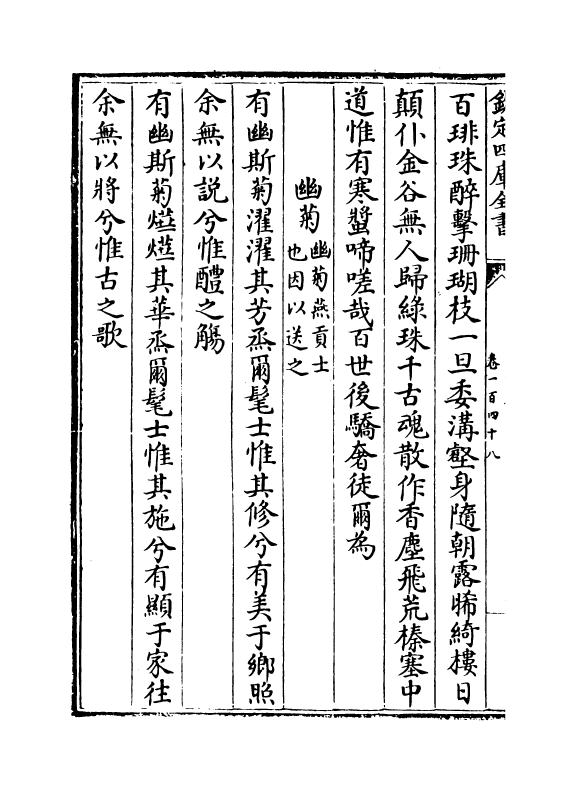 欽定四庫全書
卷一百四十八
百琲珠醉擊珊瑚枝一旦委溝壑身隨朝露晞綺樓日
顛仆金谷無人歸綠珠千古魂散作香塵飛荒榛塞中
道惟有寒螿啼嗟哉百世後驕奢徒爾為
幽菊幽菊燕貢士
也因以送之
有幽斯菊濯濯其芳烝爾髦士惟其修兮有美于鄉煕
余無以説兮惟醴之觴
有幽斯菊爗爗其華烝爾髦士惟其施兮有顯于家往
余無以將兮惟古之歌